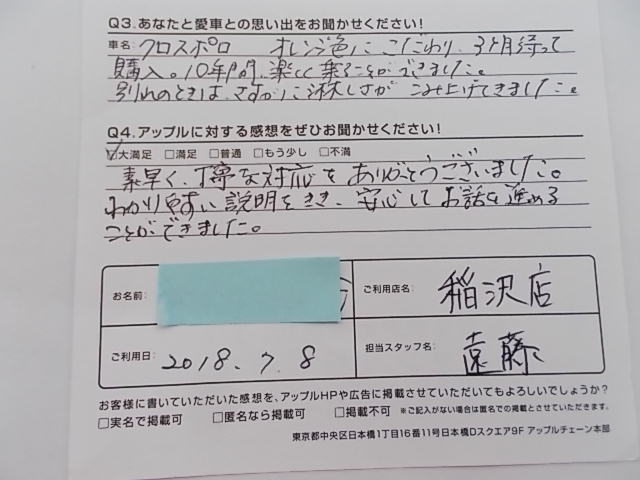 Q3.あなたと愛車との思い出をお聞かせください!
車名: クロスポロ オレンジ色にこだわり、3ヶ月待って
購入。10年間、楽しく乗ることができました。
別れのときは、さすがに淋しさがこみ上げてきました。
Q4.アップルに対する感想をぜひお聞かせください!
☑大満足 □満足 □普通 □もう少し □不満
素早く、丁寧な対応をありがとうございました。
わかりやすい説明をきき、安心してお話を進める
ことができました。
お名前:
ご利用店名: 稲沢店
ご利用日: 2018.7.8
担当スタッフ名: 遠藤
お客様に書いていただいた感想を、アップルHPや広告に掲載させていただいてもよろしいでしょうか?
□実名で掲載可 □匿名なら掲載可 □掲載不可 ※ご記入がない場合は匿名での掲載とさせていただきます。
東京都中央区日本橋1丁目16番11号日本橋Dスクエア9F アップルチェーン本部